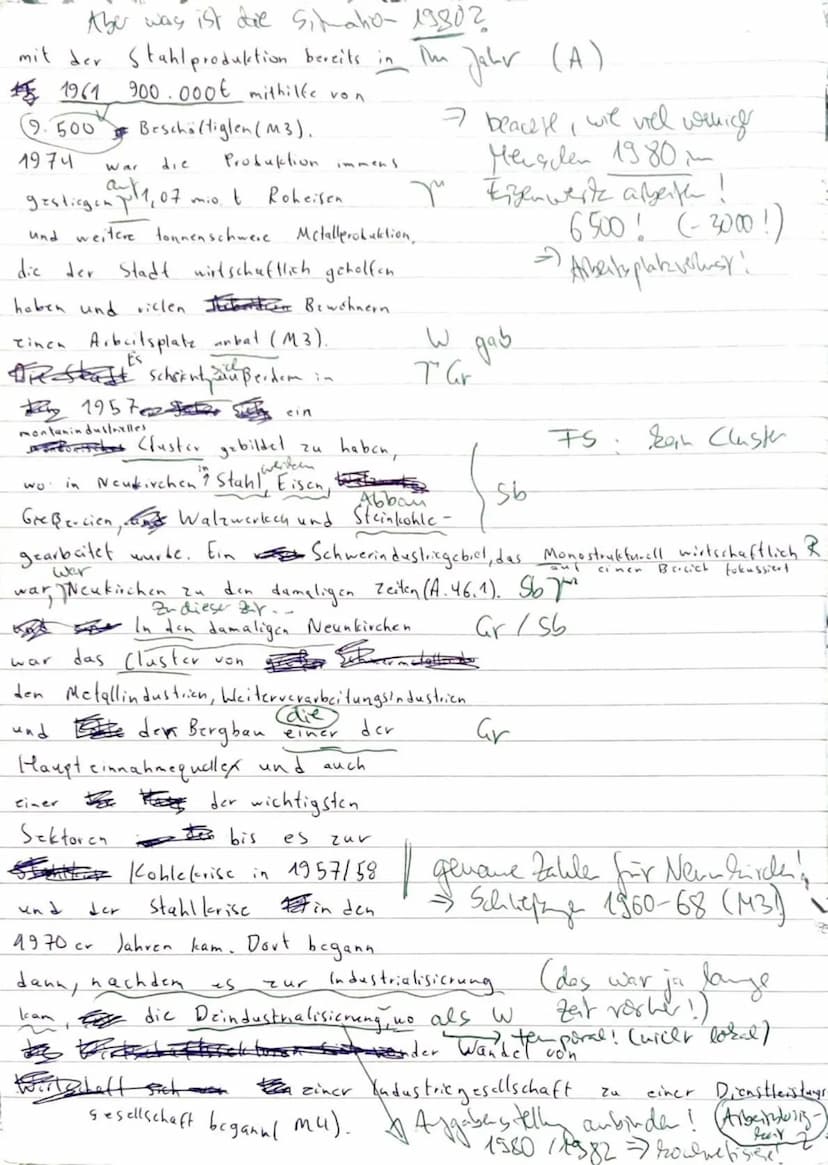 Aber was ist die Situation 1980?
mit der Stahlproduktion bereits in Im Jahr (A)
1961 900.000t mithilfe von
9.500 Beschäftigten (M3).
⇒ beachte, wie viel weniger
Menschen 1980 im
Eisenwerk arbeiten!
6500! (-3000!)
⇒ Arbeitsplatzverlust!
1974 war die Produktion immens
gestiegen auf 1,07 mio. t Roheisen
und weitere tonnenschwere Metallproduktion,
die der Stadt wirtschaftlich geholfen
haben und vielen Bewohnern
einen Arbeitsplatz anbat (M3). W gab
Es scheint sich außerdem in Gr
1957 ein
montanindustrielles
Cluster gebildet zu haben, FS: kein Cluster
wo in Neukirchen in Stahl, werken Eisen,
Abbau Sb
Gießereien, Walzwerken und Steinkohle-
gearbeitet wurde. Ein Schwerindustriegebiet, das Monostrukturell wirtschaftlich R
auf einen Bereich fokussiert
war, war Neukirchen zu den damaligen Zeiten (A.46.1). Sb
Zu dieser Zeit...
In den damaligen Neunkirchen Gr/Sb
war das Cluster von
den Metallindustrien, Weiterverarbeitungsindustrien
und den Bergbau einer die der Gr
Haupteinnahmequellen und auch
einer der wichtigsten
Sektoren bis es zur
Kohlekrise in 1957/58 genaue Zahlen für Neunkirchen!
und der Stahlkrise in den ⇒ Schließungen 1960-68 (M3)
1970er Jahren kam. Dort begann
dann, nachdem es zur Industrialisierung (das war ja lange
kam, die Deindustrialisierung, wo als W Zeit vorher!)
temporal! (nicht lokal)
der Wandel von
einer Industriegesellschaft zu einer Dienstleistungs
gesellschaft begann (M4). Aufgabenstellung anbinden! Arbeitslosig-
keit
1980/1982 ⇒ konkretisiere!